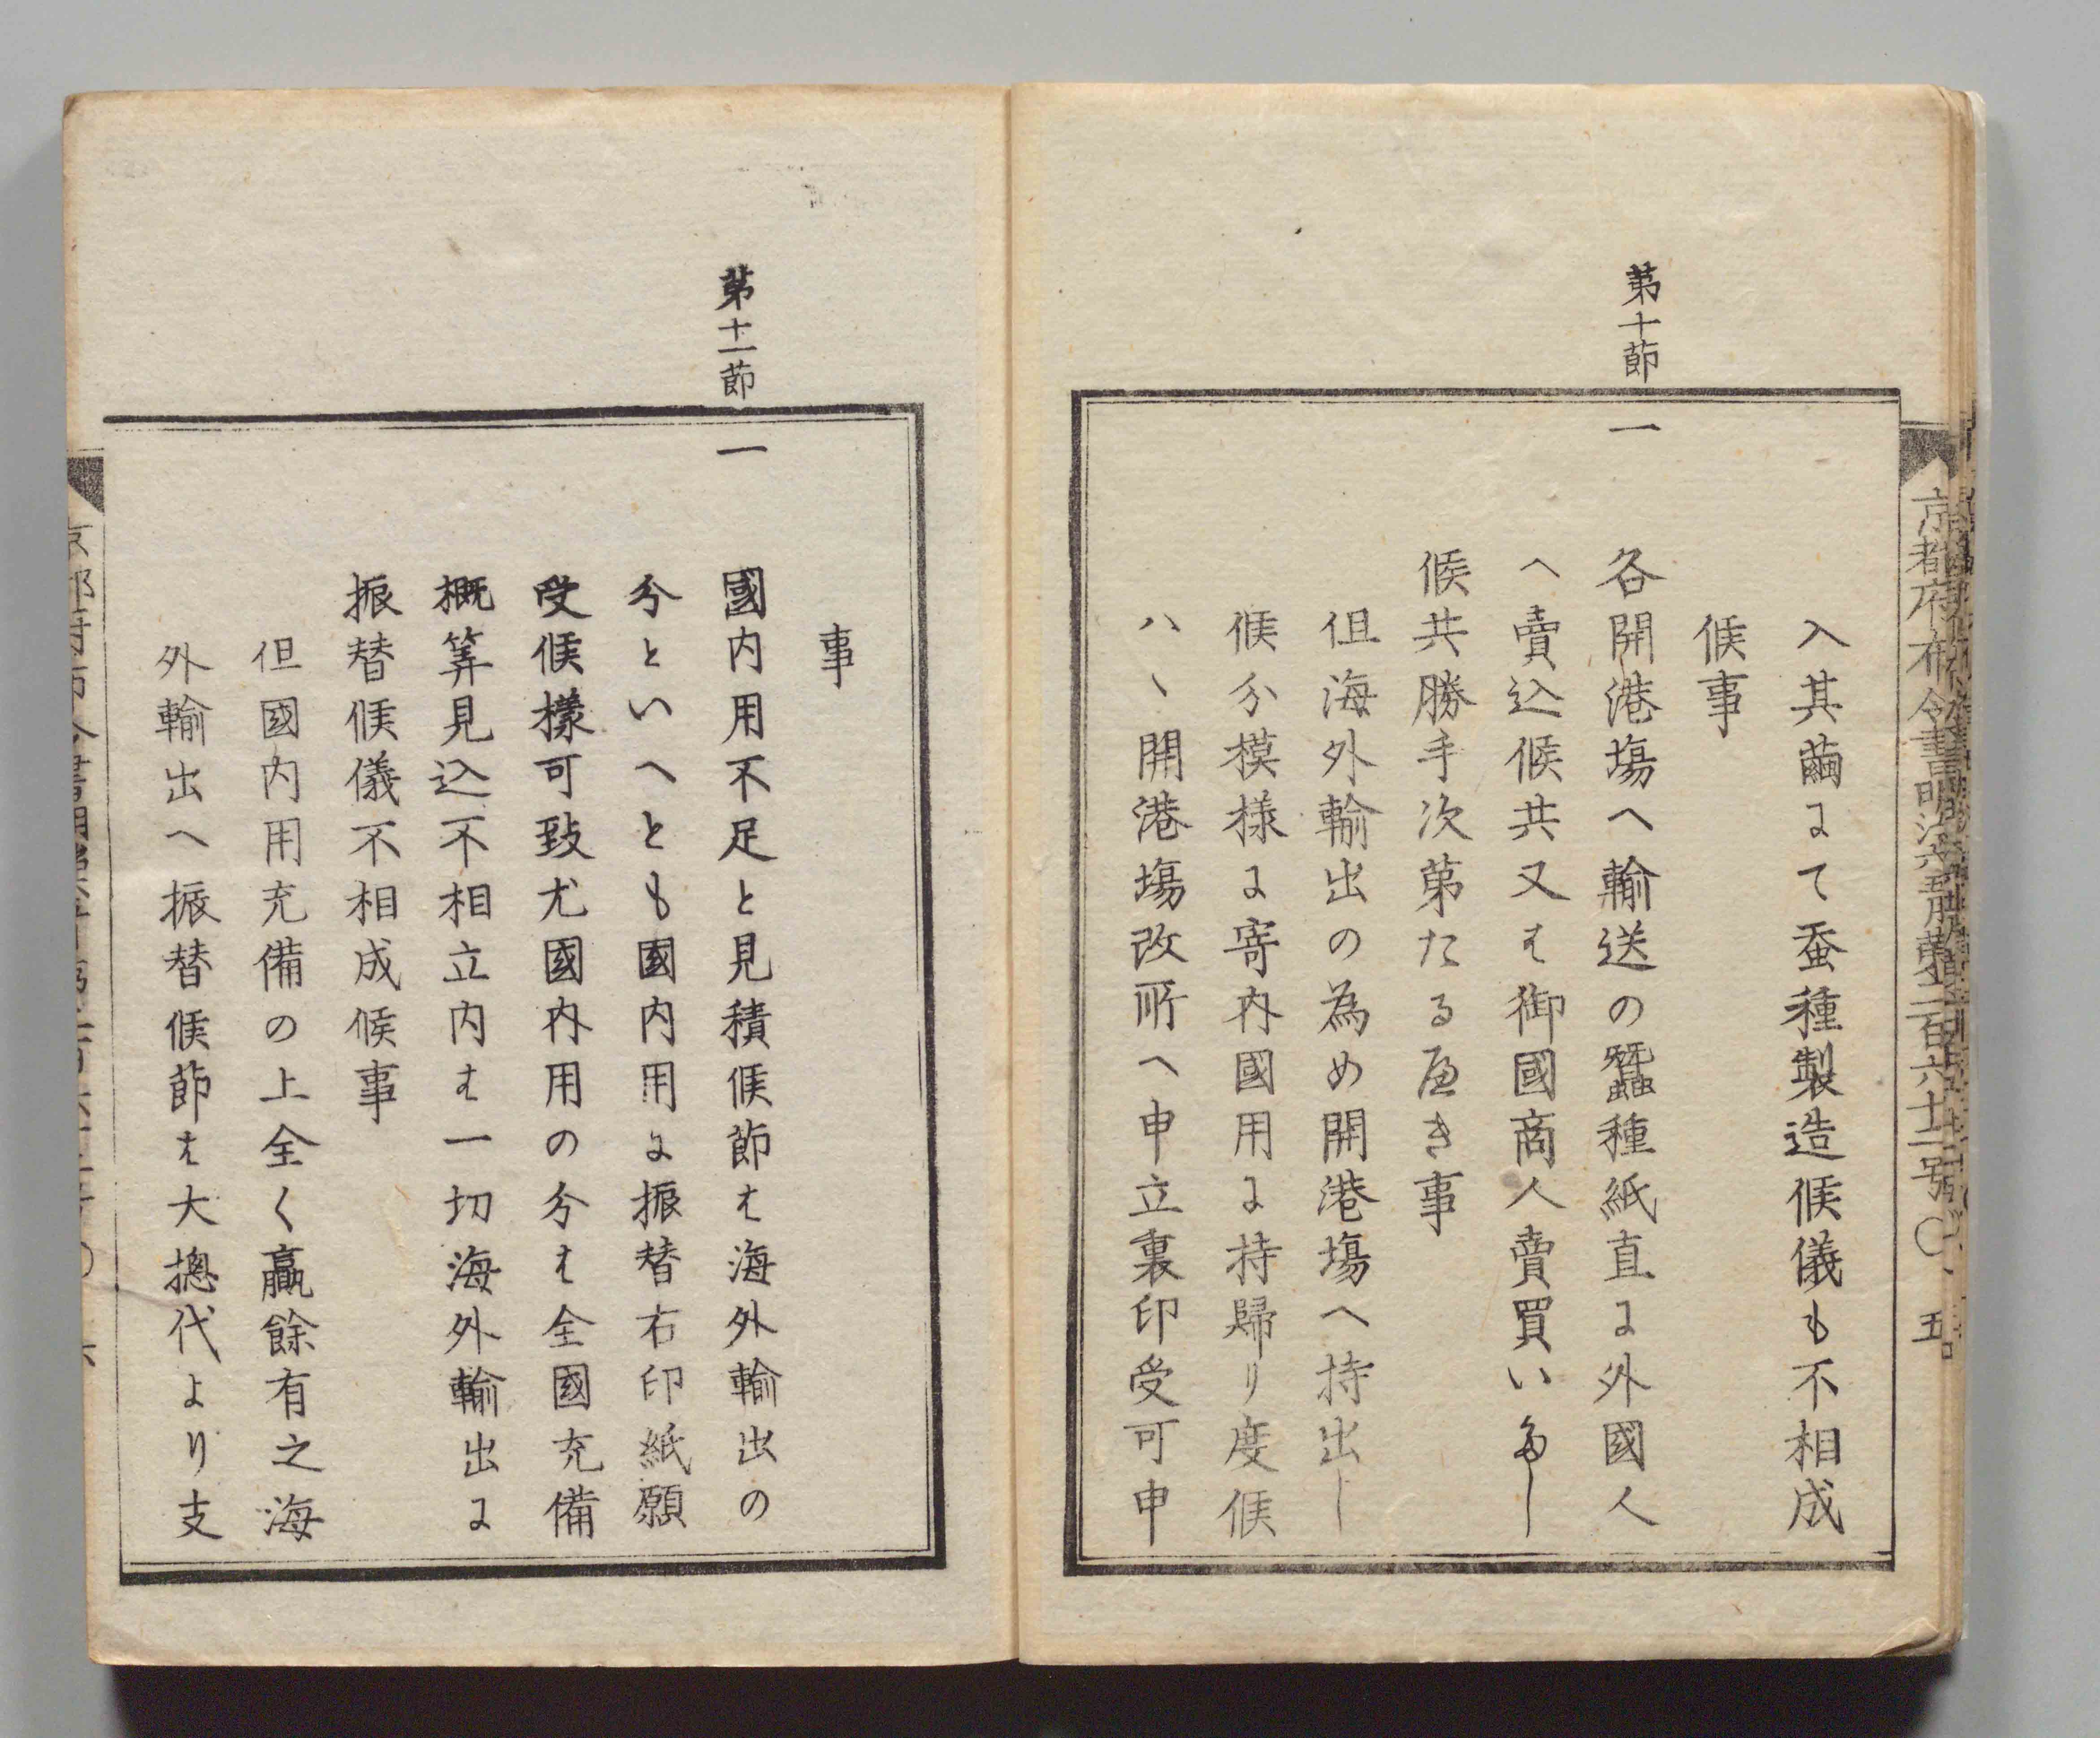 京都府布令書明治六五月第二百六十二号〇五
入其繭にて蚕種製造候儀も不相成
候事
第十節
一 各開港塲へ輸送の蠶種紙直に外國人
へ賣込候共又は御國商人賣買いたし
候共勝手次第たるべき事
但海外輸出の為め開港塲へ持出し
候分模様に寄内國用に持歸り度候
ハヽ開港塲改所へ申立裏印受可申
事
第十一節
一 國内用不足と見積候節は海外輸出の
分といへとも國内用に振替右印紙願
受候樣可致尤國内用の分は全國充備
概筭見込不相立内は一切海外輸出に
振替候儀不相成候事
但國内用充備の上全く贏餘有之海
外輸出へ振替候節は大摠代より支